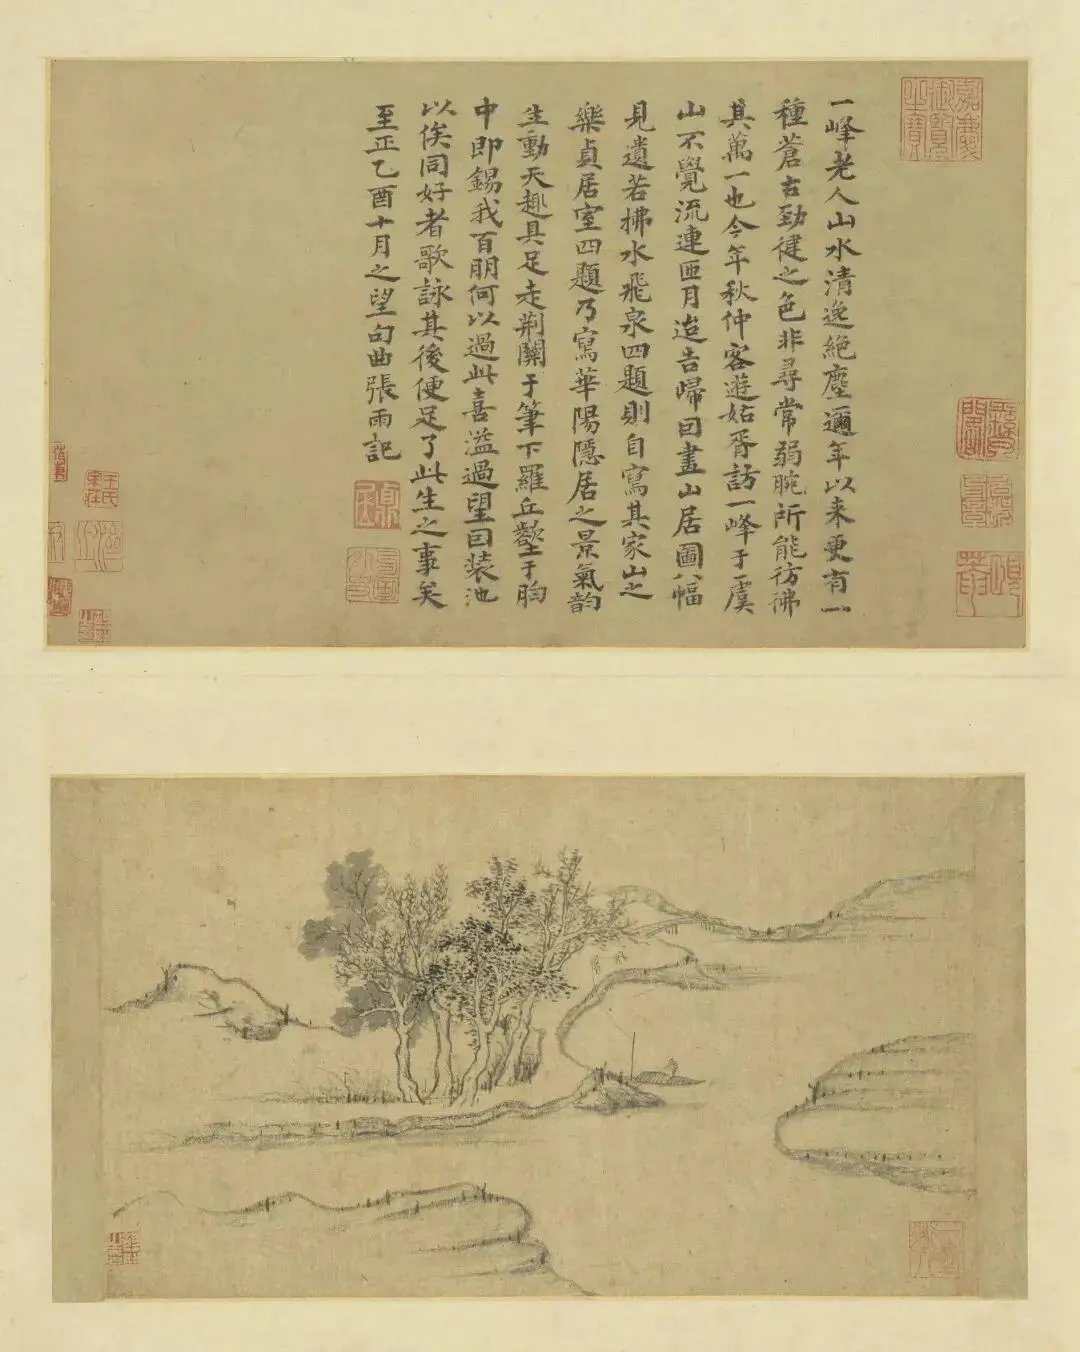 一峰老人山水清逸絕塵邇年以来更有一
種蒼古勁健之色非尋常弱腕所能彷彿
其萬一也今年秋仲客遊姑胥訪一峰于虞
山不覺流連匝月迨告歸回畫山居圖八幅
見遺若拂水飛泉四題則自寫其家山之
樂貞居室四題乃寫華陽隱居之景氣韵
生動天趣具足走荆關于筆下羅丘壑于胸
中即錫我百朋何以過此喜溢過望回装池
以俟同好者歌詠其後便足了此生之事矣
至正乙酉十月之望句曲張雨記